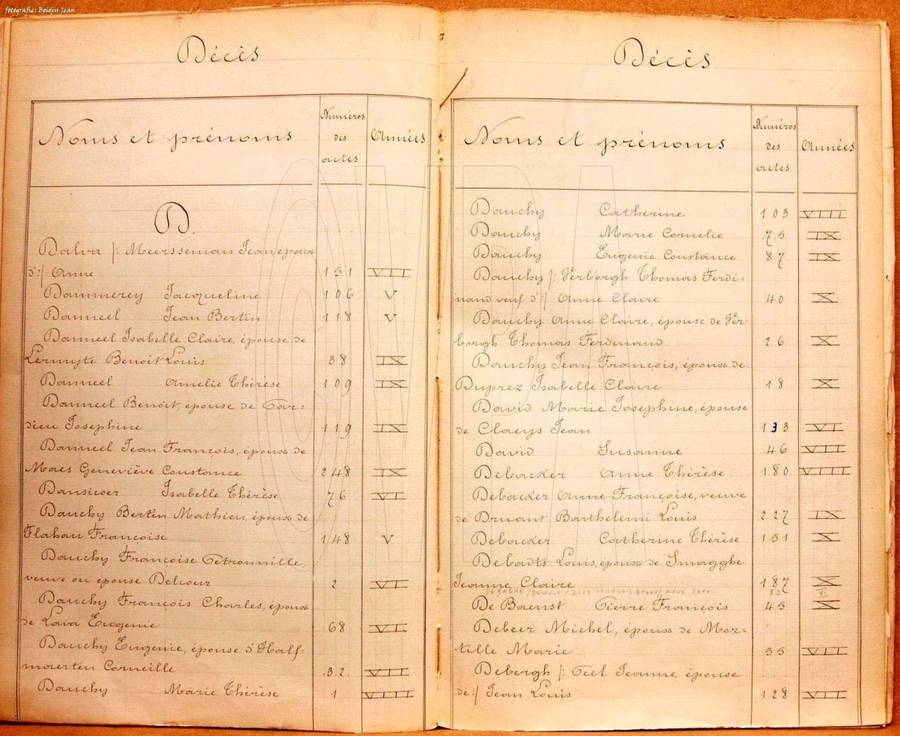 fotografie: Boidin Jean
Décès
Noms et prénoms
Numéros des actes
Années
D.
Dalva /: Meersseman Jean, épouse
d':/ Anne 151 VII
Dammerey Jacqueline 106 V
Danneel Jean Bertin 118 V
Danneel Isabelle Claire, épouse de
Lermyte Benoît Louis 38 IX
Danneel Amelie Thérèse 109 IX
Danneel Benoît, épouse de Car-
dieu Josephine 119 IX
Danneel Jean François, épous de
Maes Geneviève Constance 248 IX
Dansicoer Isabelle Thérèse 76 VI
Dauchy Bertin Mathieu, épous de
Flahau Françoise 148 V
Dauchy Françoise Pétronnille,
veuve ou épouse Delcour 2 VI
Dauchy François Charles, épous
de Lava Eugenie 68 VI
Dauchy Eugenie, épouse d'Half-
maerten Corneille 32 VII
Dauchy Marie Thérèse 1 VIII
Décès
Noms et prénoms
Numéros des actes
Années
Dauchy Catherine 103 VIII
Dauchy Marie Cornelie 75 IX
Dauchy Eugenie Constance 87 IX
Dauchy /: Verborgh Thomas Ferdi-
nand veuf d':/ Anne Claire 40 X
Dauchy Anne Claire, épouse de Ver-
borgh Thomas Ferdinand 26 X
Dauchy Jean François, épous de
Duprez Isabelle Claire 18 X
David Marie Josephine, épouse
de Claeys Jean 133 VI
David Susanne 46 VII
Debacker Anne Thérèse 180 VIII
Debacker Anne Françoise, veuve
de Druant Barthelemi Louis 227 IX
Debacker Catherine Thérèse 151 X
Debaets Louis, épouse de Smagghe
Jeanne Claire 187 X
De Baenst Pierre François 45 X
Debeer Michel, épous de Mor-
tille Marie 55 VII
Debergh /: Piet Jeanne, épouse
de:/ Jean Louis 128 VII